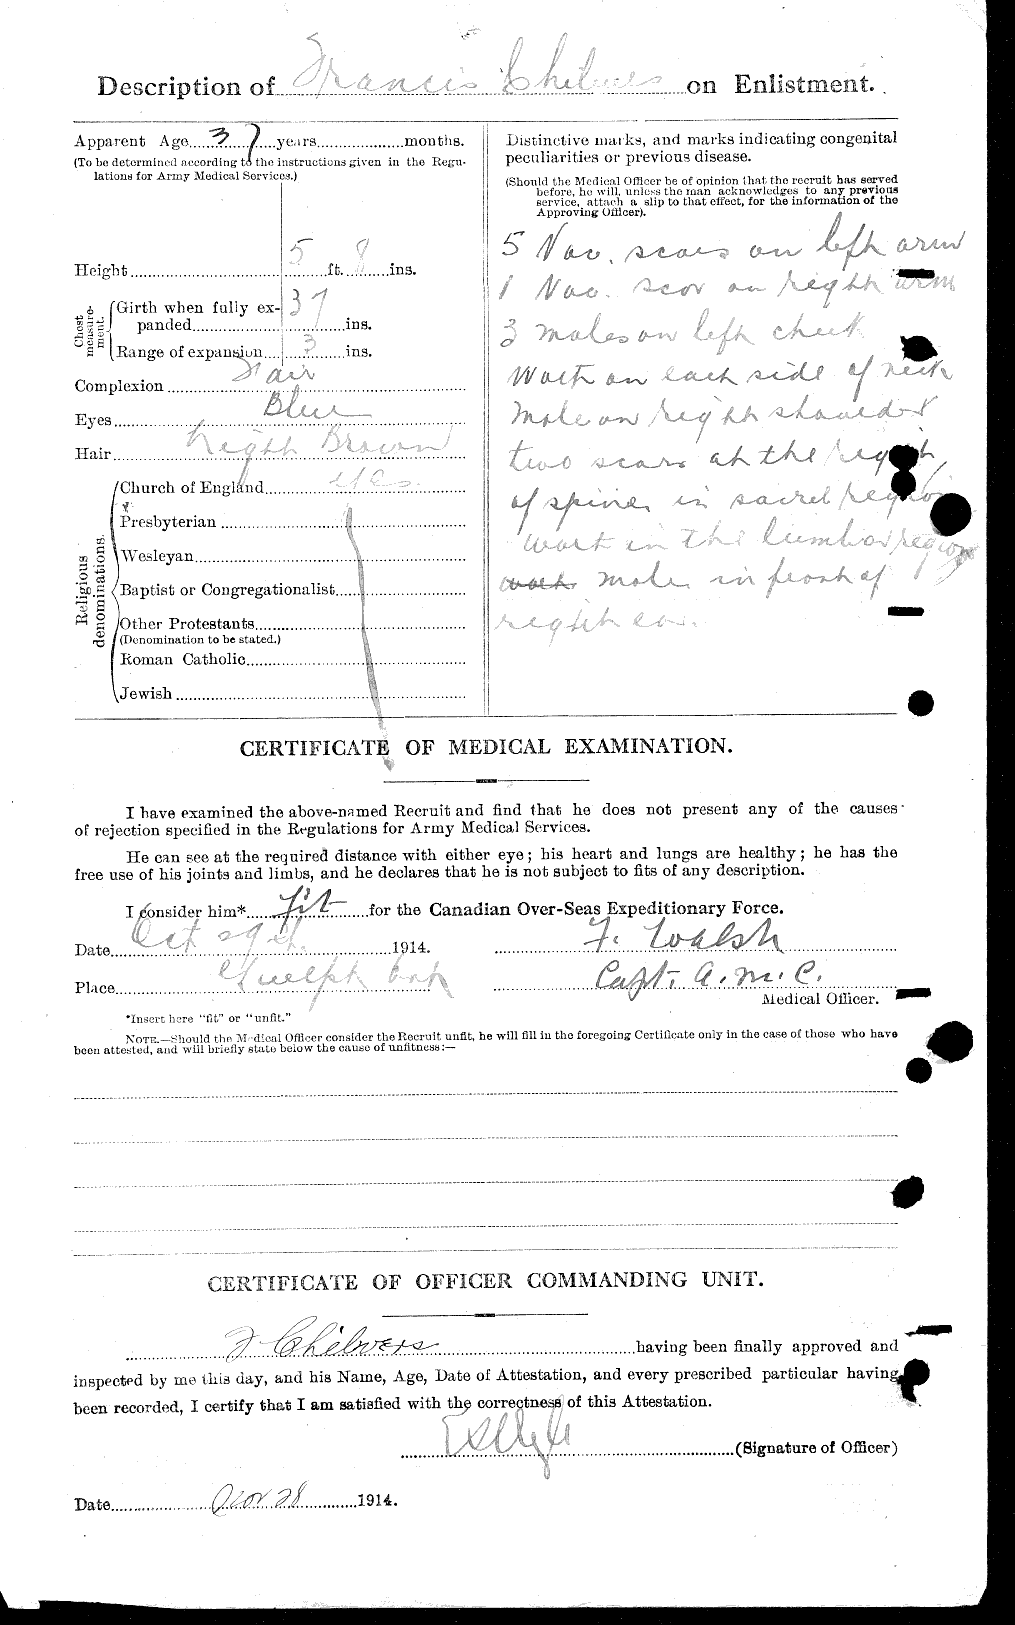 Description of Francis Chilvers on Enlistment.
Apparent Age 37 years months.
(To be determined according to the instructions given in the Regu-
lations for Army Medical Services.)
Height 5 ft. 8 ins.
Chest measure-ment.
Girth when fully ex-
panded 37 ins.
Range of expansion 3 ins.
Complexion Fair
Eyes Blue
Hair Light Brown
Religious denominations.
Church of England yes.
Presbyterian
Wesleyan
Baptist or Congregationalist
Other Protestants
(Denomination to be stated.)
Roman Catholic
Jewish
Distinctive marks, and marks indicating congenital
peculiarities or previous disease.
(Should the Medical Officer be of opinion that the recruit has served
before, he will, unless the man acknowledges to any previous
service, attach a slip to that effect, for the information of the
Approving Officer).
5 Vac. scars on left arm
1 Vac. scar on right arm
3 moles on left cheek
Wart on each side of neck
mole on right should
two scars at the right
of spine in sacral region
wart in the lumbar region
mole in front of
right ear.
CERTIFICATE OF MEDICAL EXAMINATION.
I have examined the above-named Recruit and find that he does not present any of the causes
of rejection specified in the Regulations for Army Medical Services.
He can see at the required distance with either eye; his heart and lungs are healthy; he has the
free use of his joints and limbs, and he declares that he is not subject to fits of any description.
I consider him* fit for the Canadian Over-Seas Expeditionary Force.
Date Oct 29th. 1914. F. Walsh
Place Guelph Ont Capt. A. M. C.
Medical Officer.
*Insert here "fit" or "unfit."
NOTE.—Should the Medical Officer consider the Recruit unfit, he will fill in the foregoing Certificate only in the case of those who have
been attested, and will briefly state below the cause of unfitness:—
CERTIFICATE OF OFFICER COMMANDING UNIT.
F Chilvers having been finally approved and
inspected by me this day, and his Name, Age, Date of Attestation, and every prescribed particular having
been recorded, I certify that I am satisfied with the correctness of this Attestation.
(Signature of Officer)
Date Nov 28 1914.